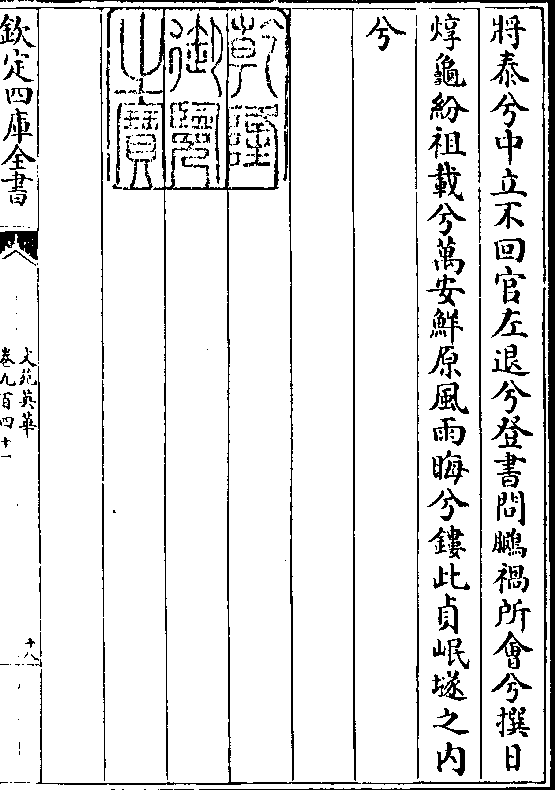 將泰兮中立不回官左退兮登書問鵩禍所會兮撰日
焞龜紛祖載兮萬安鮮原風雨晦兮鏤此貞岷墜之内
兮
乾隆
御覽
之寶
欽定四庫全書
文苑英華
卷九百四十一
十八